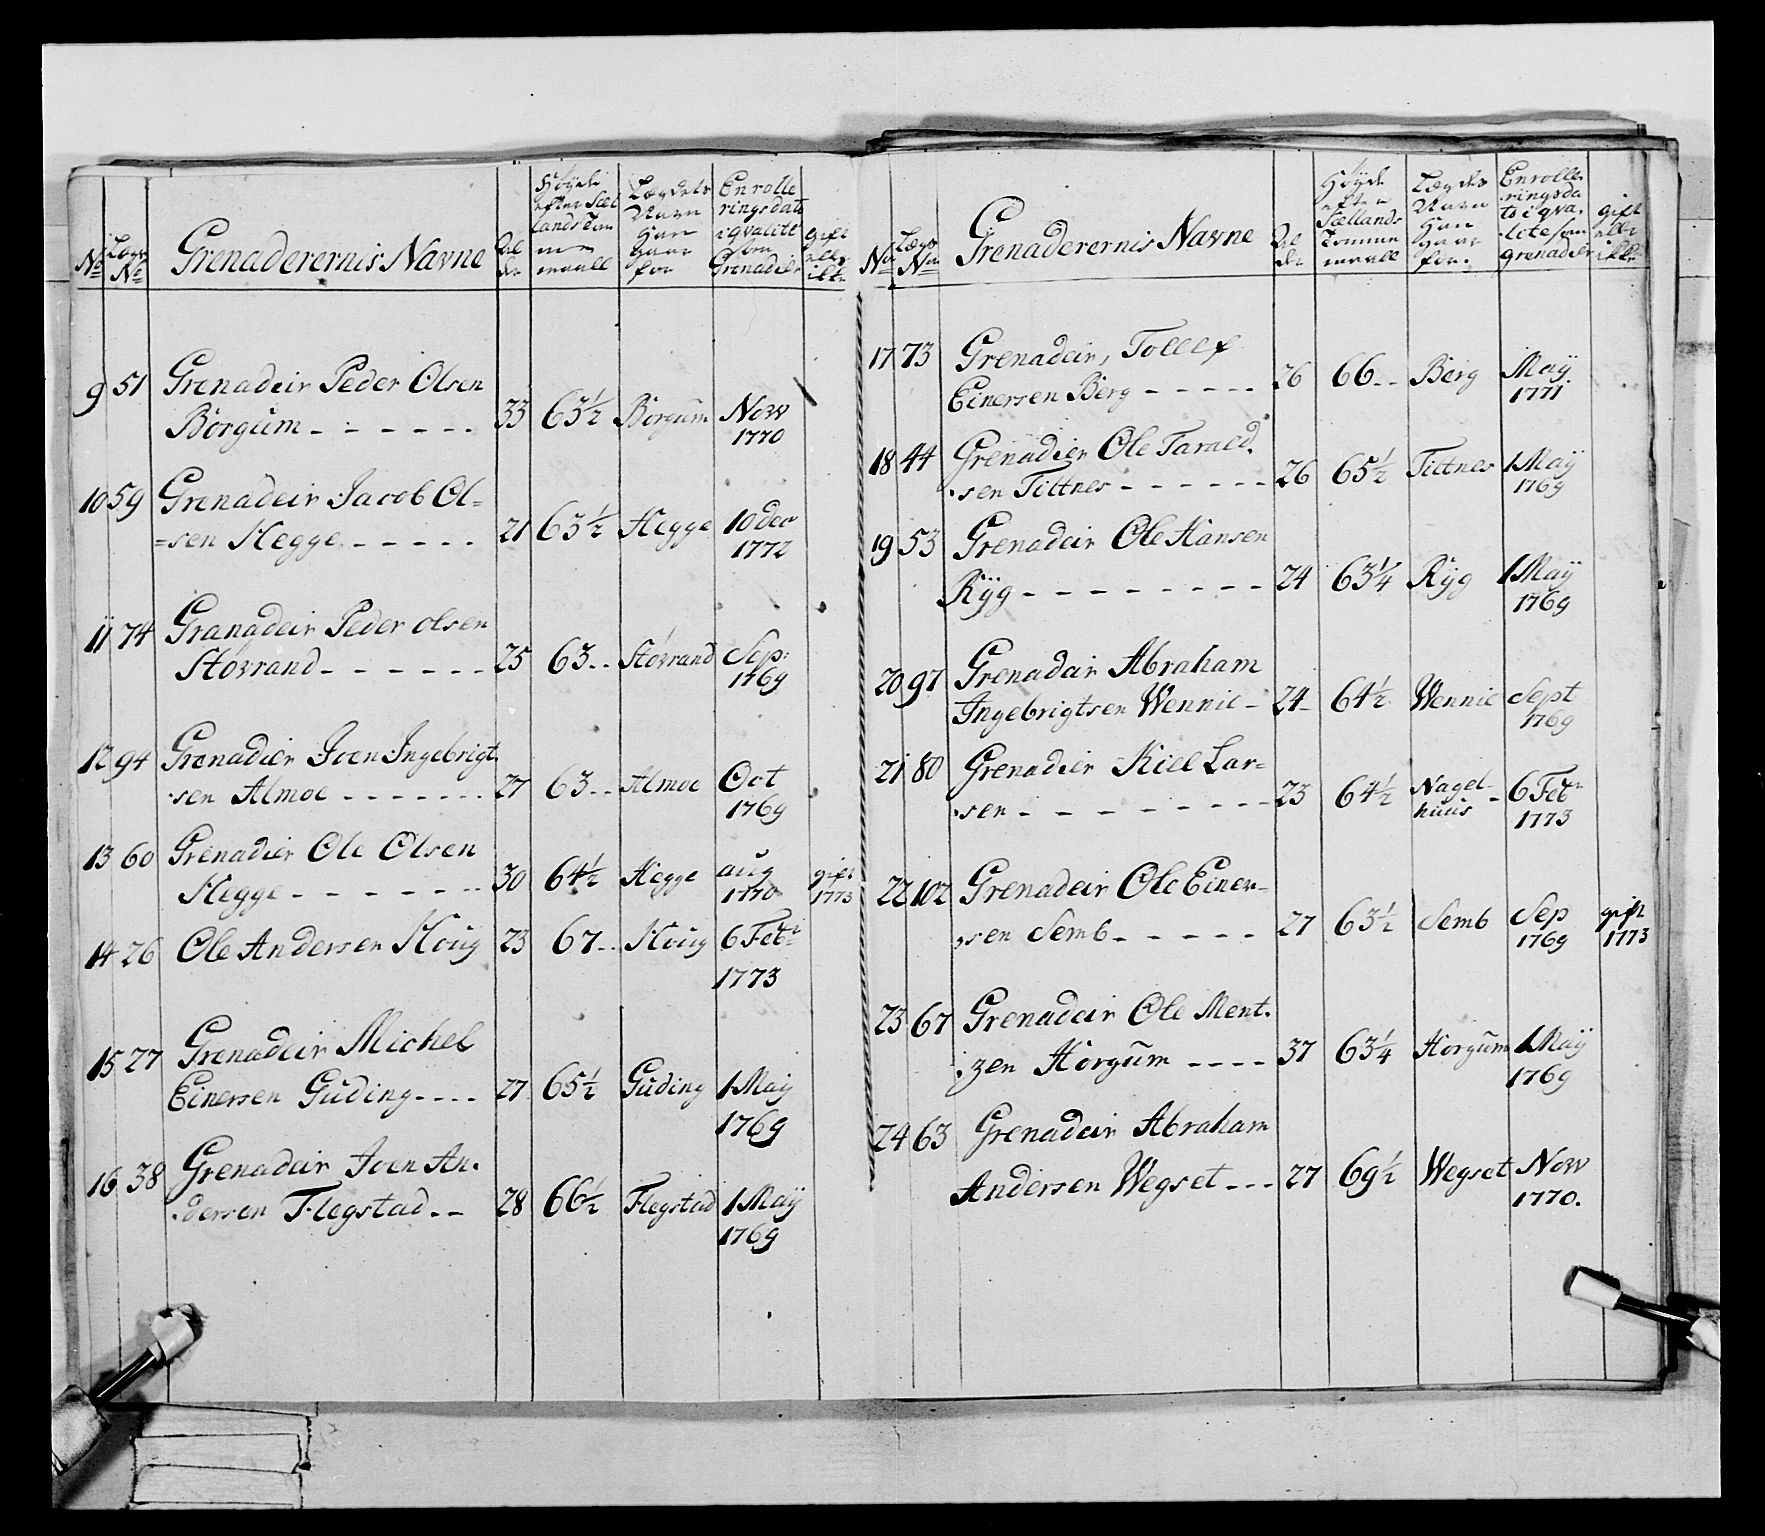 No
Lægs No
Grenaderernis Navne
Alder
Høyde efter Sællands Tommemaall
Lægdets Navn Han Staar for
Enrolleringsdato i qvalitet som Grenadeir
gift eller ikke
9 51 Grenadeir Peder Olsen
Borgum - - - - - - 33 63½ Borgum Nov 1770
10 59 Grenadeir Jacob Ol=
=sen Hegge - - - - - 21 63½ Hegge 10 dec 1772
11 74 Granadeir Peder olsen
Stövrand - - - - - - 25 63 - - Stövrand Sep: 1769
12 94 Grenadier Joen Ingebrigt
sen Almoe - - - - - - - 27 63 - - Almoe Oct 1769
13 60 Grenadier Ole Olsen
Hegge - - - - - - - 30 64½ Hegge aug 1770 gift 1773
14 26 Ole Andersen Houg 23 67 - - Houg 6 Febr 1773
15 27 Grenadeir Michel
Einersen Guding - - - - 27 65½ Guding 1 Maÿ 1769
16 38 Grenadeir Joen An.
dersen Flegstad - - 28 66½ Flegstad 1 Maÿ 1769
No
Lægs No
Grenaderernis Navne
Alder
Høyde efter Sællands Tommemaall
Lægdes Navn Han Staar for.
Enrolleringsdato i qvalite som grenadeir
gift eller ikke
17 73 Grenadeir, Tollef
Einersen Berg - - - - - 26 66 - - Berg Maÿ 1771
18 44 Grenadier Ole Tarald.
sen Tittnes - - - - - - 26 65½ Tittnes 1 Maÿ 1769
19 53 Grenadeir Ole Hansen
Rÿg - - - - - - - - - 24 63¼ Rÿg 1 Maÿ 1769
20 97 Grenadeir Abraham
Ingebrigtsen Wennie - 24 - 64½ Wennie Sept 1769
21 80 Grenadier Kiel Lar=
sen - - - - - - - - - 23 64½ Nagel-huus - 6 Febr 1773
22 102 Grenadeir Ole Einer-
sen Semb - - - - - - 27 63½ Semb Sep 1769 gift 1773
23 67 Grenadeir Ole Ment.
zen Horgum - - - - 37 63¼ Horgum 1 Maÿ 1769
24 63 Grenadeir Abraham
Andersen Wegset - - - 27 69½ Wegset Nov 1770.